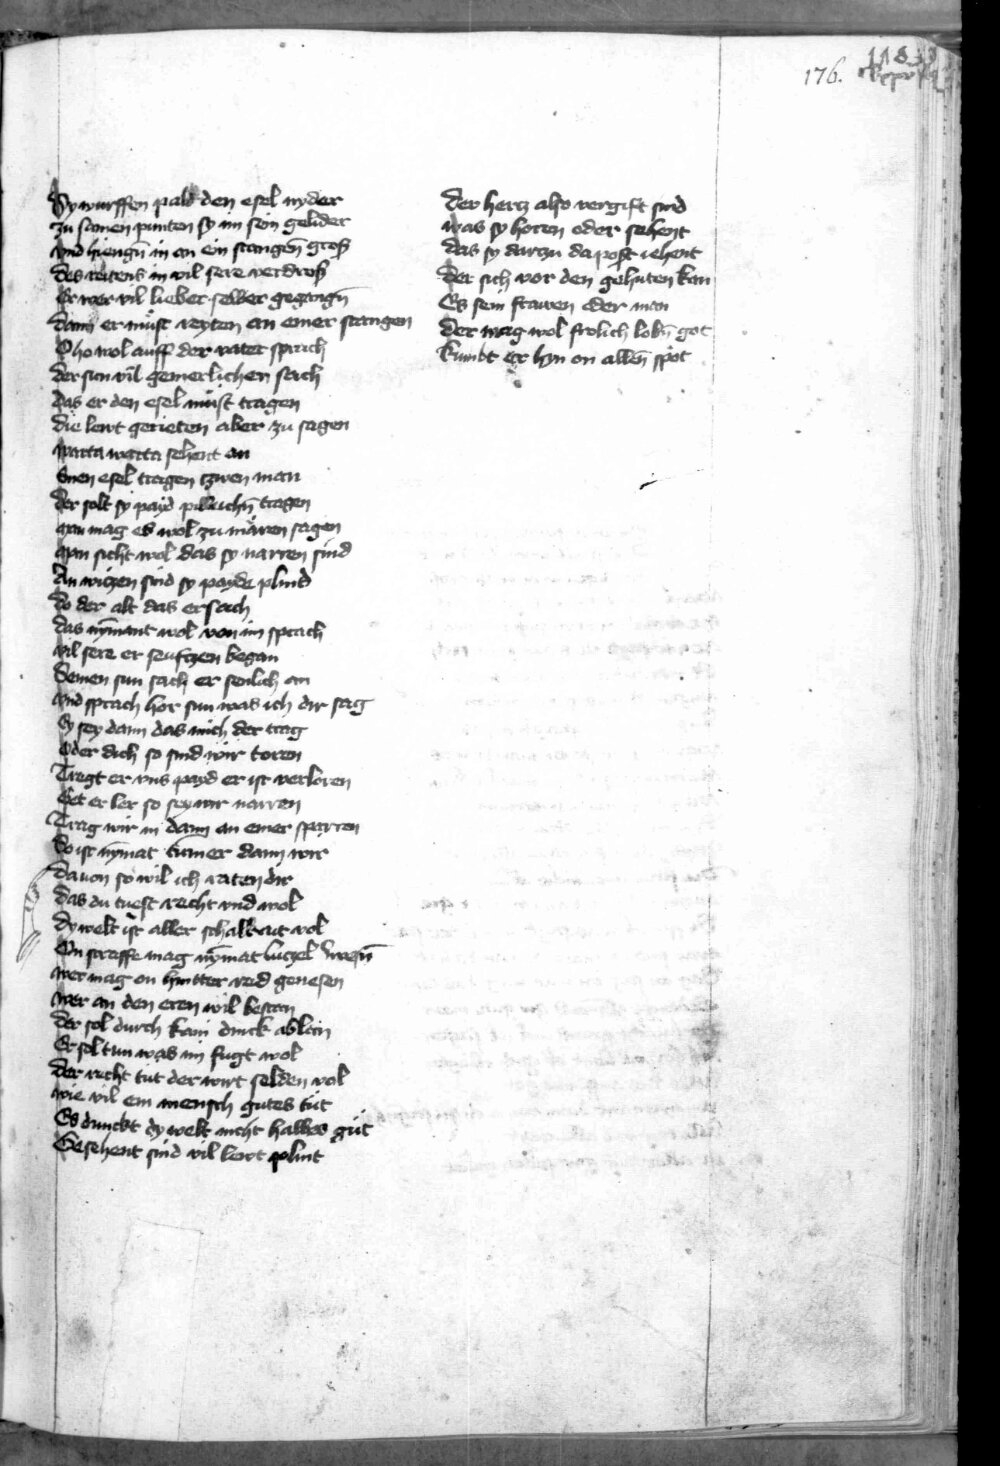 176.
Sy wurffen pald den esel nyder
zu samen punten sy im sein gelider
vnd hiengñ in an ein stangeñ groß
des reitens in vil sere verdroß
Er wer vil lieber selber gegangñ
dann er müst reyten an einer stangen
Oho wol auff der vater sprach
der sun vil gemerlichen sach
das er den esel müst tragen
die lewt gerieten aber zu sagen
warta warta sehent an
einen esel tragen zwen man
der solt sy payd pillichñ tragen
man mag es wol zu mären sagen
man sicht wol das sy narren sind
An witzen sind sy payde plind
do der alt das ersach
das nÿmant wol von im sprach
vil sere er seuftzen began
Seinen sun sach er senlich an
vnd sprach hor sun was ich dir sag
Es sey dann das mich der trag
oder dich so sind wir toren
Tregt er vns payd er ist verloren
Get er ler so sey wir narren
Trag wir in dann an einer sparren
So ist nÿmat tümer dann wir
dauon so wil ich raten dir
das du tuest recht vnd wol
dy welt ist aller schalkait vol
On straffe mag nÿmat lutzel
wer mag on hintter red genesen
wer an den eren wil bestan
der sol durch kain ablan
Er sol tun was im fugt wol
der recht tut der wirt selden vol
wie vil ein mensch gutes tüt
Es dunckt dy welt nicht halbes güt
Gesehent sind vil lewt plint
der hertz also vergift sind
was sy horen oder sehent
das sy darzu da post iehent
der sich vor den gehuten kan
Es sein frawen oder man
der mag wol frolich lobñ got
kumbt er hyn on alleñ spot